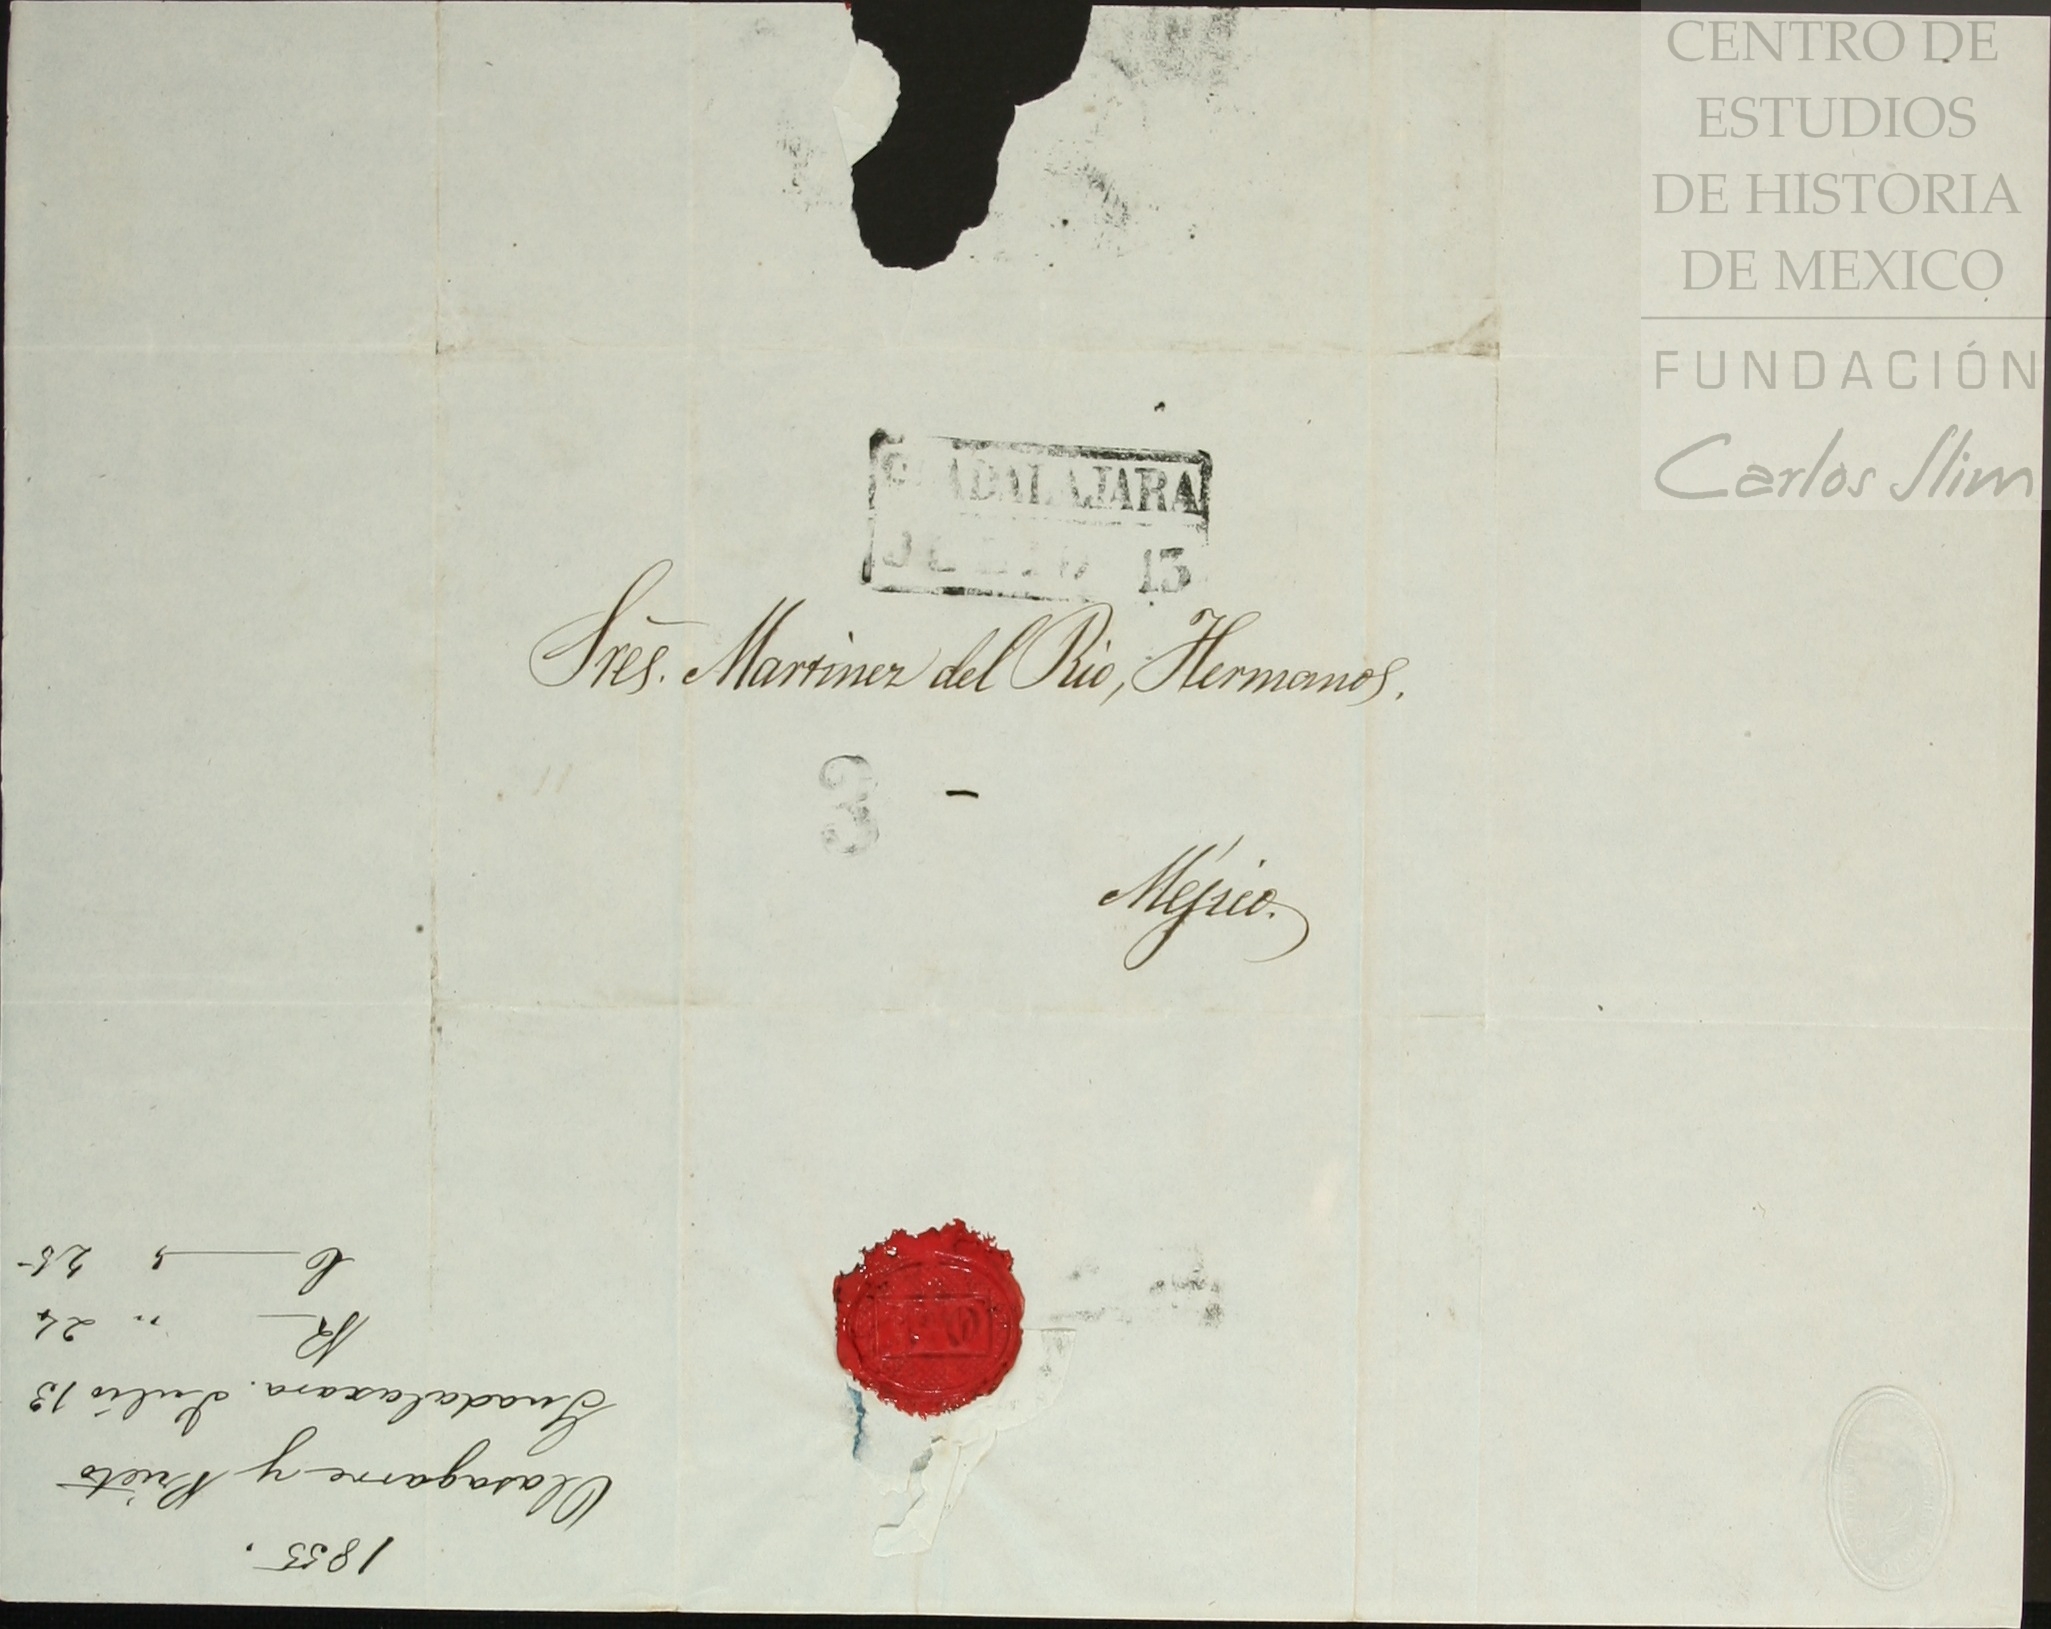 CENTRO DE
ESTUDIOS
DE HISTORIA
DE MEXICO
FUNDACIÓN
Carlos Slim
GUADALAJARA
JULIO 13
Sres. Martinez del Rio, Hermanos.
3 -
Méjico.
1855.
Olasagarre y Prieto
Guadalaxara. Julio 13
R — " 24
C — " 25